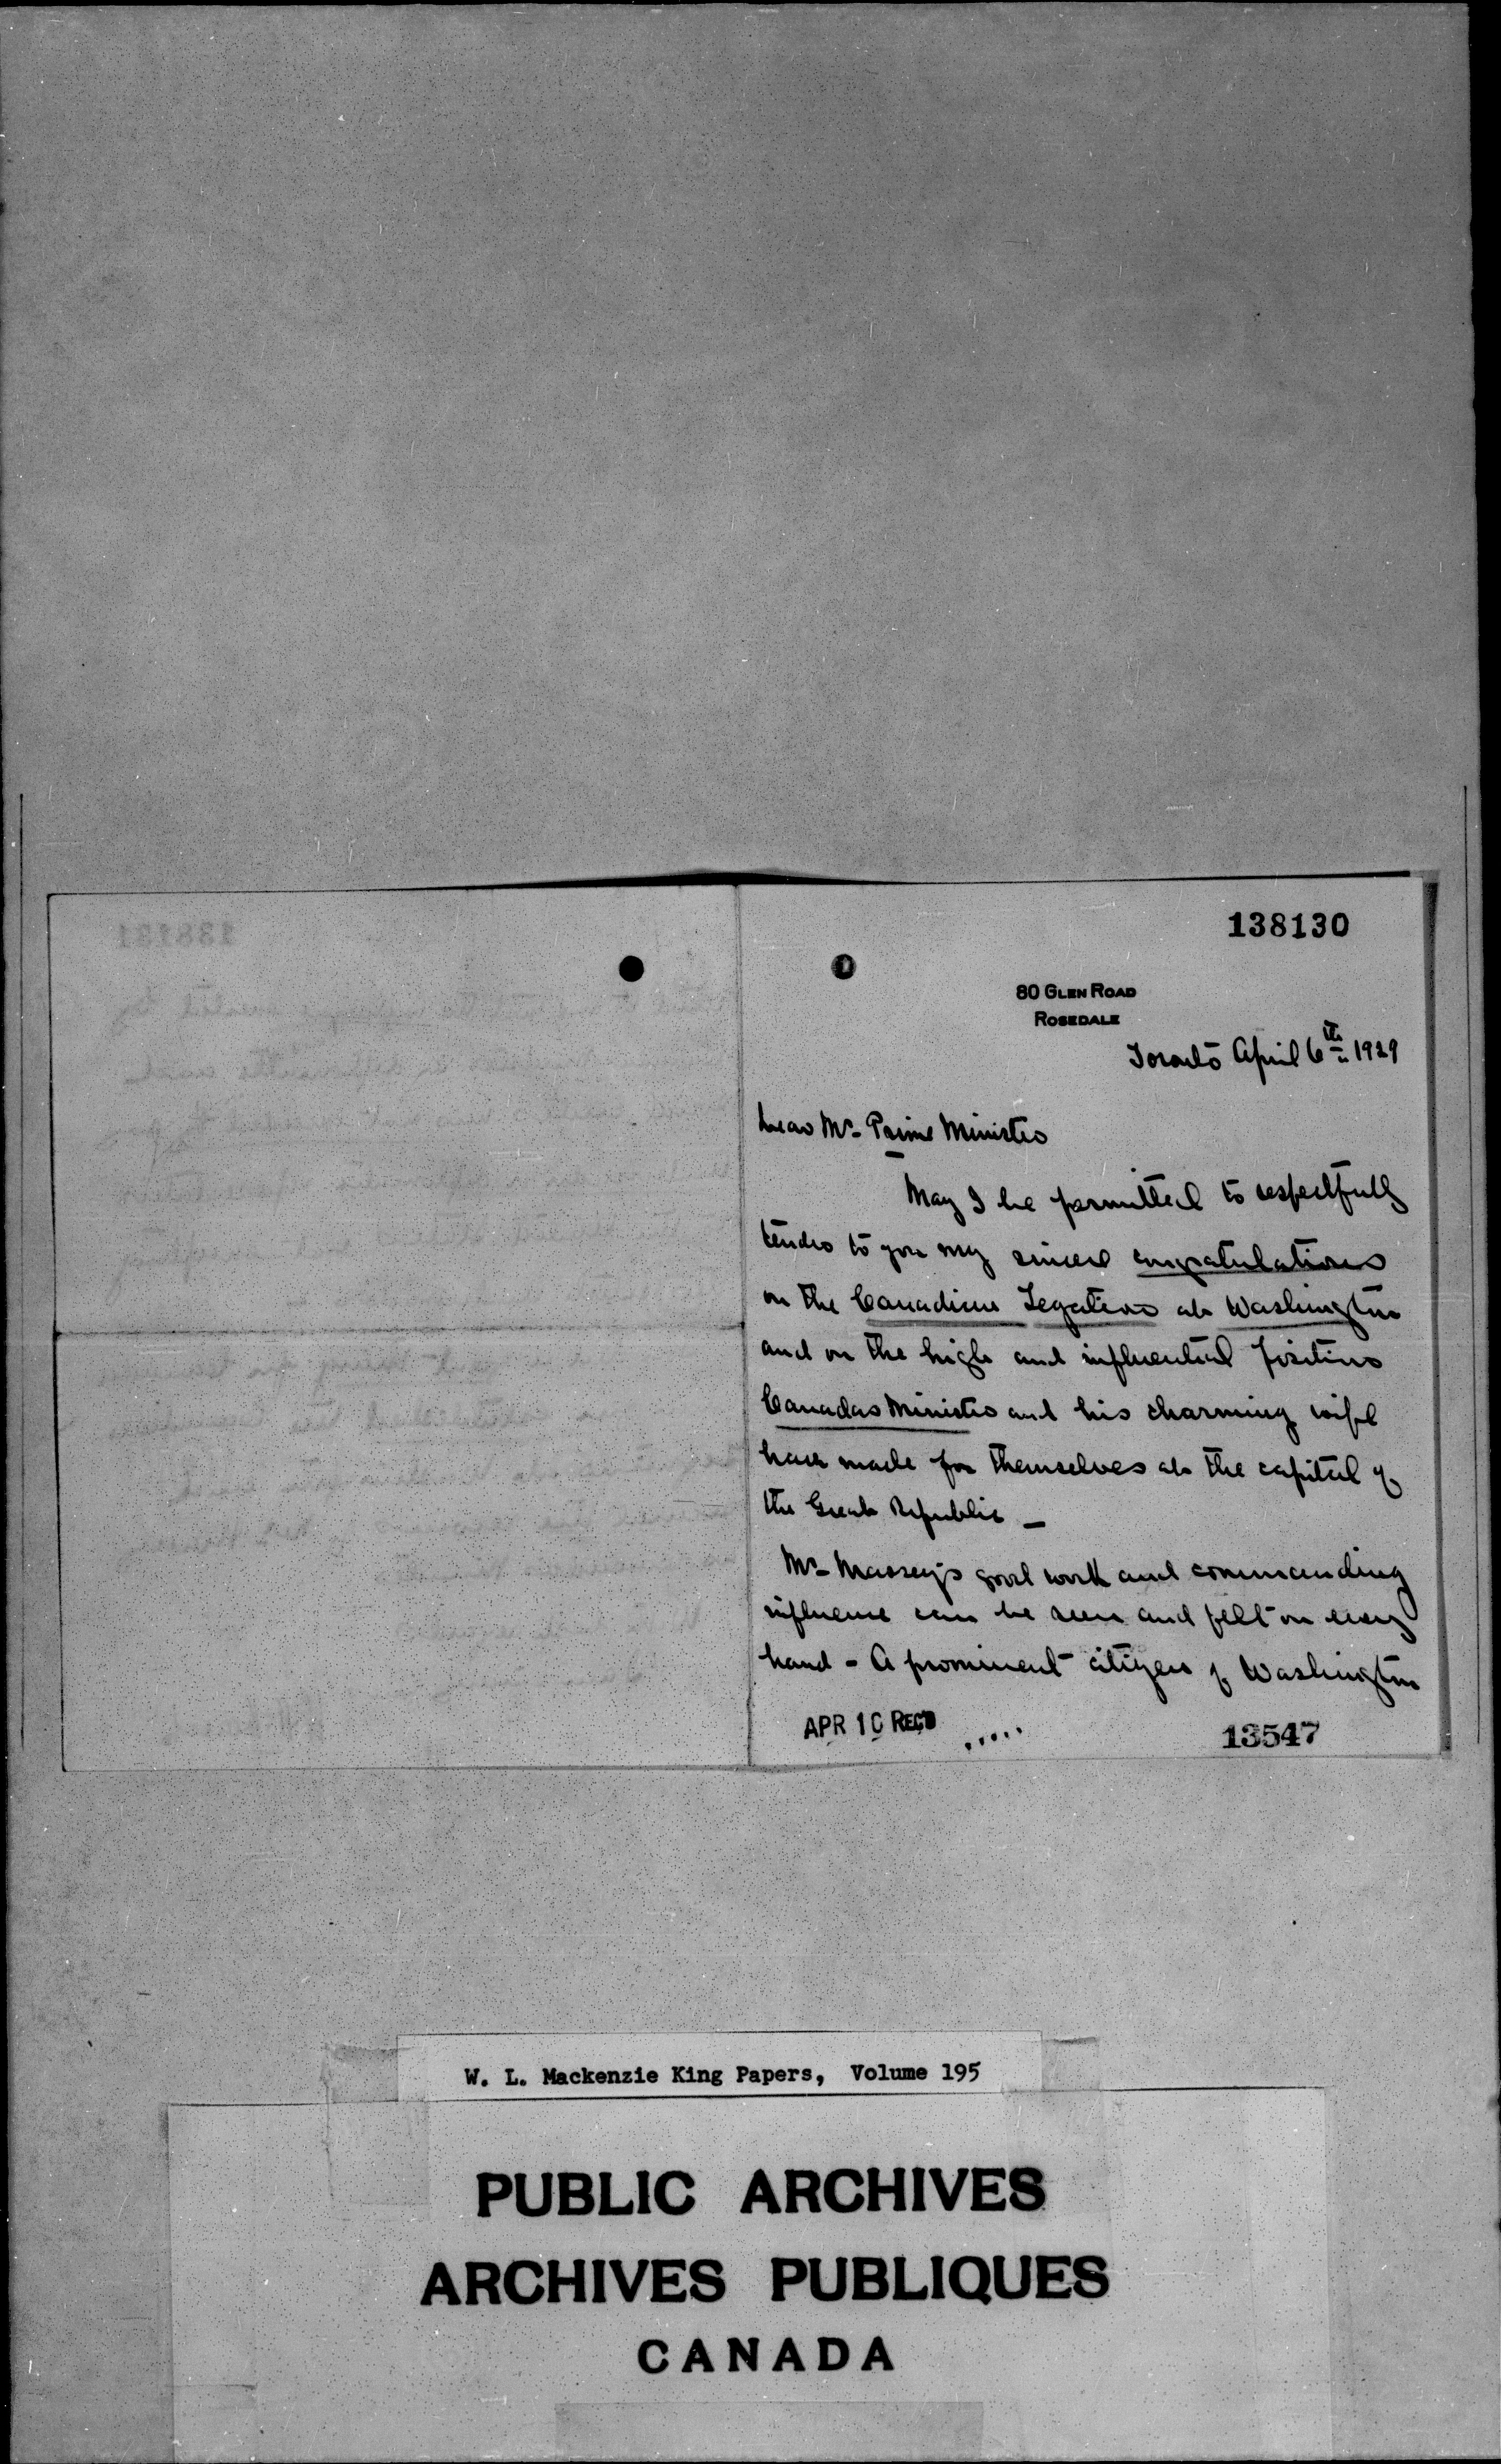 138130
80 GLEN ROAD
ROSEDALE
Toronto April 6th 1929
Dear Mr. Prime Minister
May I be permitted to respectfully
tender to you my sincere congratulations
on the Canadian Legation at Washington
and on the high and influential position
Canadas Minister and his charming wife
have made for themselves at the capital of
the Great Republic —
Mr. Massey's good work and commanding
influence can be seen and felt on every
hand - A prominent citizen of Washington
APR 10 REC'D .....
13547
W. L. Mackenzie King Papers, Volume 195
PUBLIC ARCHIVES
ARCHIVES PUBLIQUES
CANADA